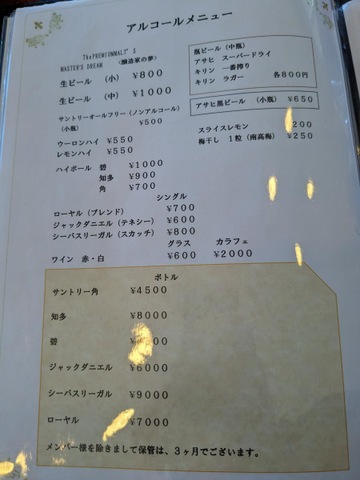 アルコールメニュー
ThePREMIUMMALT'S
MASTER'S DREAM (醸造家の夢)
生ビール (小) ¥800
生ビール (中) ¥1000
サントリーオールフリー(ノンアルコール)
(小瓶) ¥500
ウーロンハイ ¥550
レモンハイ ¥550
ハイボール 碧 ¥1000
知多 ¥900
角 ¥700
瓶ビール(中瓶)
アサヒ スーパードライ
キリン 一番搾り
キリン ラガー 各800円
アサヒ黒ビール(小瓶) ¥650
スライスレモン 200
梅干し 1粒(南高梅) ¥250
シングル
ローヤル(ブレンド) ¥700
ジャックダニエル(テネシー) ¥600
シーバスリーガル(スカッチ) ¥800
グラス カラフェ
ワイン 赤・白 ¥600 ¥2000
ボトル
サントリー角 ¥4500
知多 ¥8000
碧
ジャックダニエル ¥6000
シーバスリーガル ¥9000
ローヤル ¥7000
メンバー様を除きまして保管は、3ヶ月でございます。